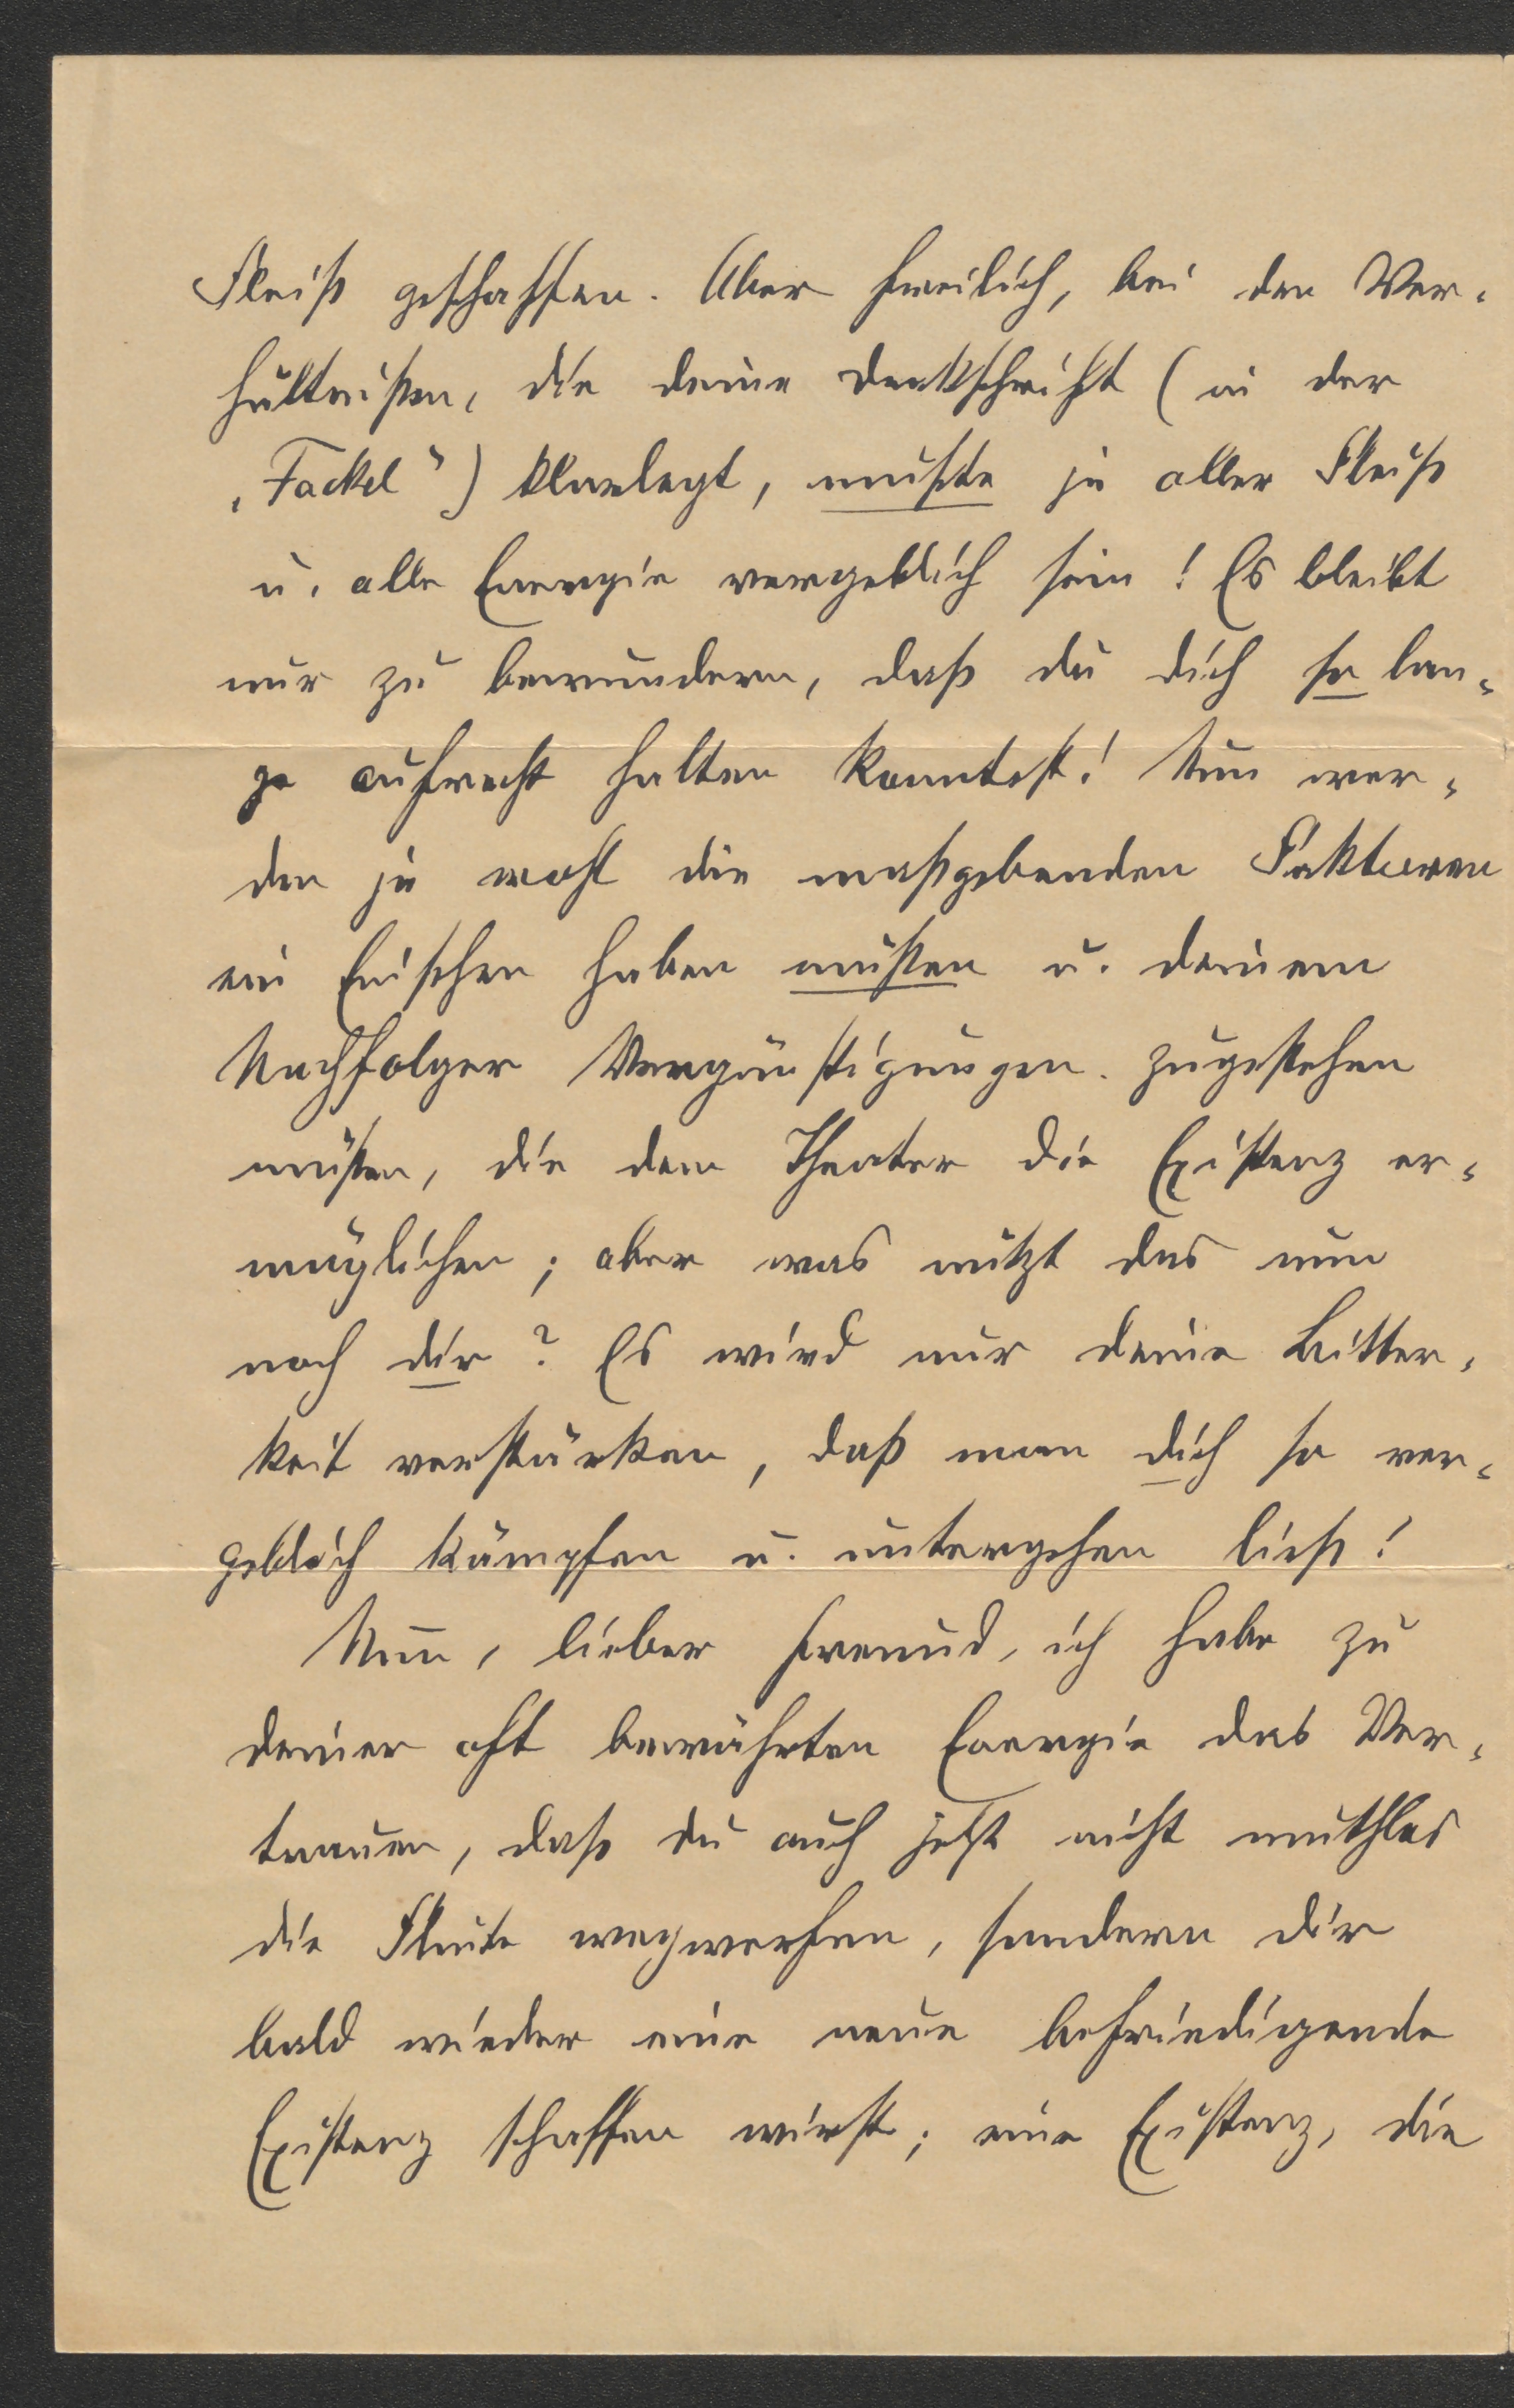 Fleiß geschaffen. Aber freilich, bei den Ver-
hältnißen, die deine Denkschrift (in der
„Fackel“) klarlegt, mußte ja aller Fleiß
u. alle Energie vergeblich sein! Es bleibt
nur zu bewundern, daß du dich so lan-
ge aufrecht halten konntest! Nun wer-
den ja wohl die maßgebenden Faktoren
ein Einsehen haben müßen u. deinem
Nachfolger Vergünstigungen zugestehen
müßen, die dem Theater die Existenz er-
möglichen; aber was nützt das nun
noch dir? Es wird nur deine Bitter-
keit verstärken, daß man dich so ver-
geblich kämpfen u. untergehen ließ!
Nun, lieber Freund, ich habe zu
deiner oft bewährten Energie das Ver-
trauen, daß du auch jetzt nicht muthlos
die Flinte wegwerfen, sondern dir
bald wieder eine neue befriedigende
Existenz schaffen wirst; eine Existenz, die